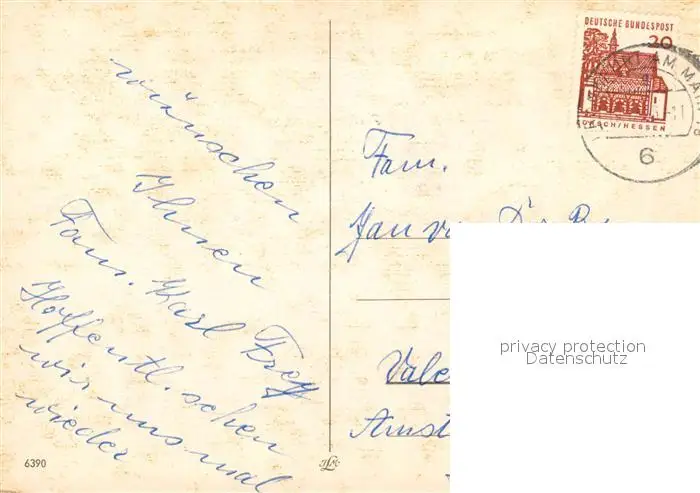 wünschen
Ihnen
Fam. Karl Frey
Hoffentl. sehen
wir uns mal
wieder
6390
DEUTSCHE BUNDESPOST
20
LORSCH/HESSEN
AM MAIN
6
Fam.
Jan
Vale
Amst
privacy protection
Datenschutz